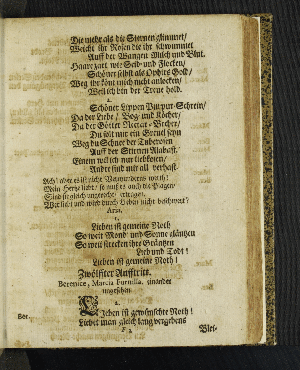 Die mehr als die Sternen glimmet/
Weicht ihr Rosen die ihr schwimmet
Auff der Wangen Milch und Blut.
Haare zart wie Seid- und Flocken/
Schöner selbst als Ophirs Gold/
Weg ihr könt mich nicht anlocken/
Weil ich bin der Treue hold.
2.
Schöner Lippen Purpur-Schrein/
Da der Liebe Bog- und Köcher/
Da der Götter Nectar-Becher/
Du solt mir ein Greuel seyn
Weg du Schnee der Tuberosen
Auff der Stirnen Alabast.
Einem will ich nur liebkosen/
Andre sind mir all verhast.
Ach! aber es ist nicht
Mein Hertze liebt/ so muß es auch die Plagen/
ertragen.
Wer liebt und wird durch Lieben nicht
Aria.
1.
Lieben ist gemeine Noth
So weit Mond und Sonne gläntzen
So weit strecken ihre Gräntzen
Lieb und Todt!
Lieben ist gemeine Noth!
Zwölfter Aufftritt.
Berenice, Marcia Furnilla, einander
ungesehen.
2.
Lieben ist gewünschte Noth!
Liebet man gleich lang vergebens
Ber.
F 2
Blei-